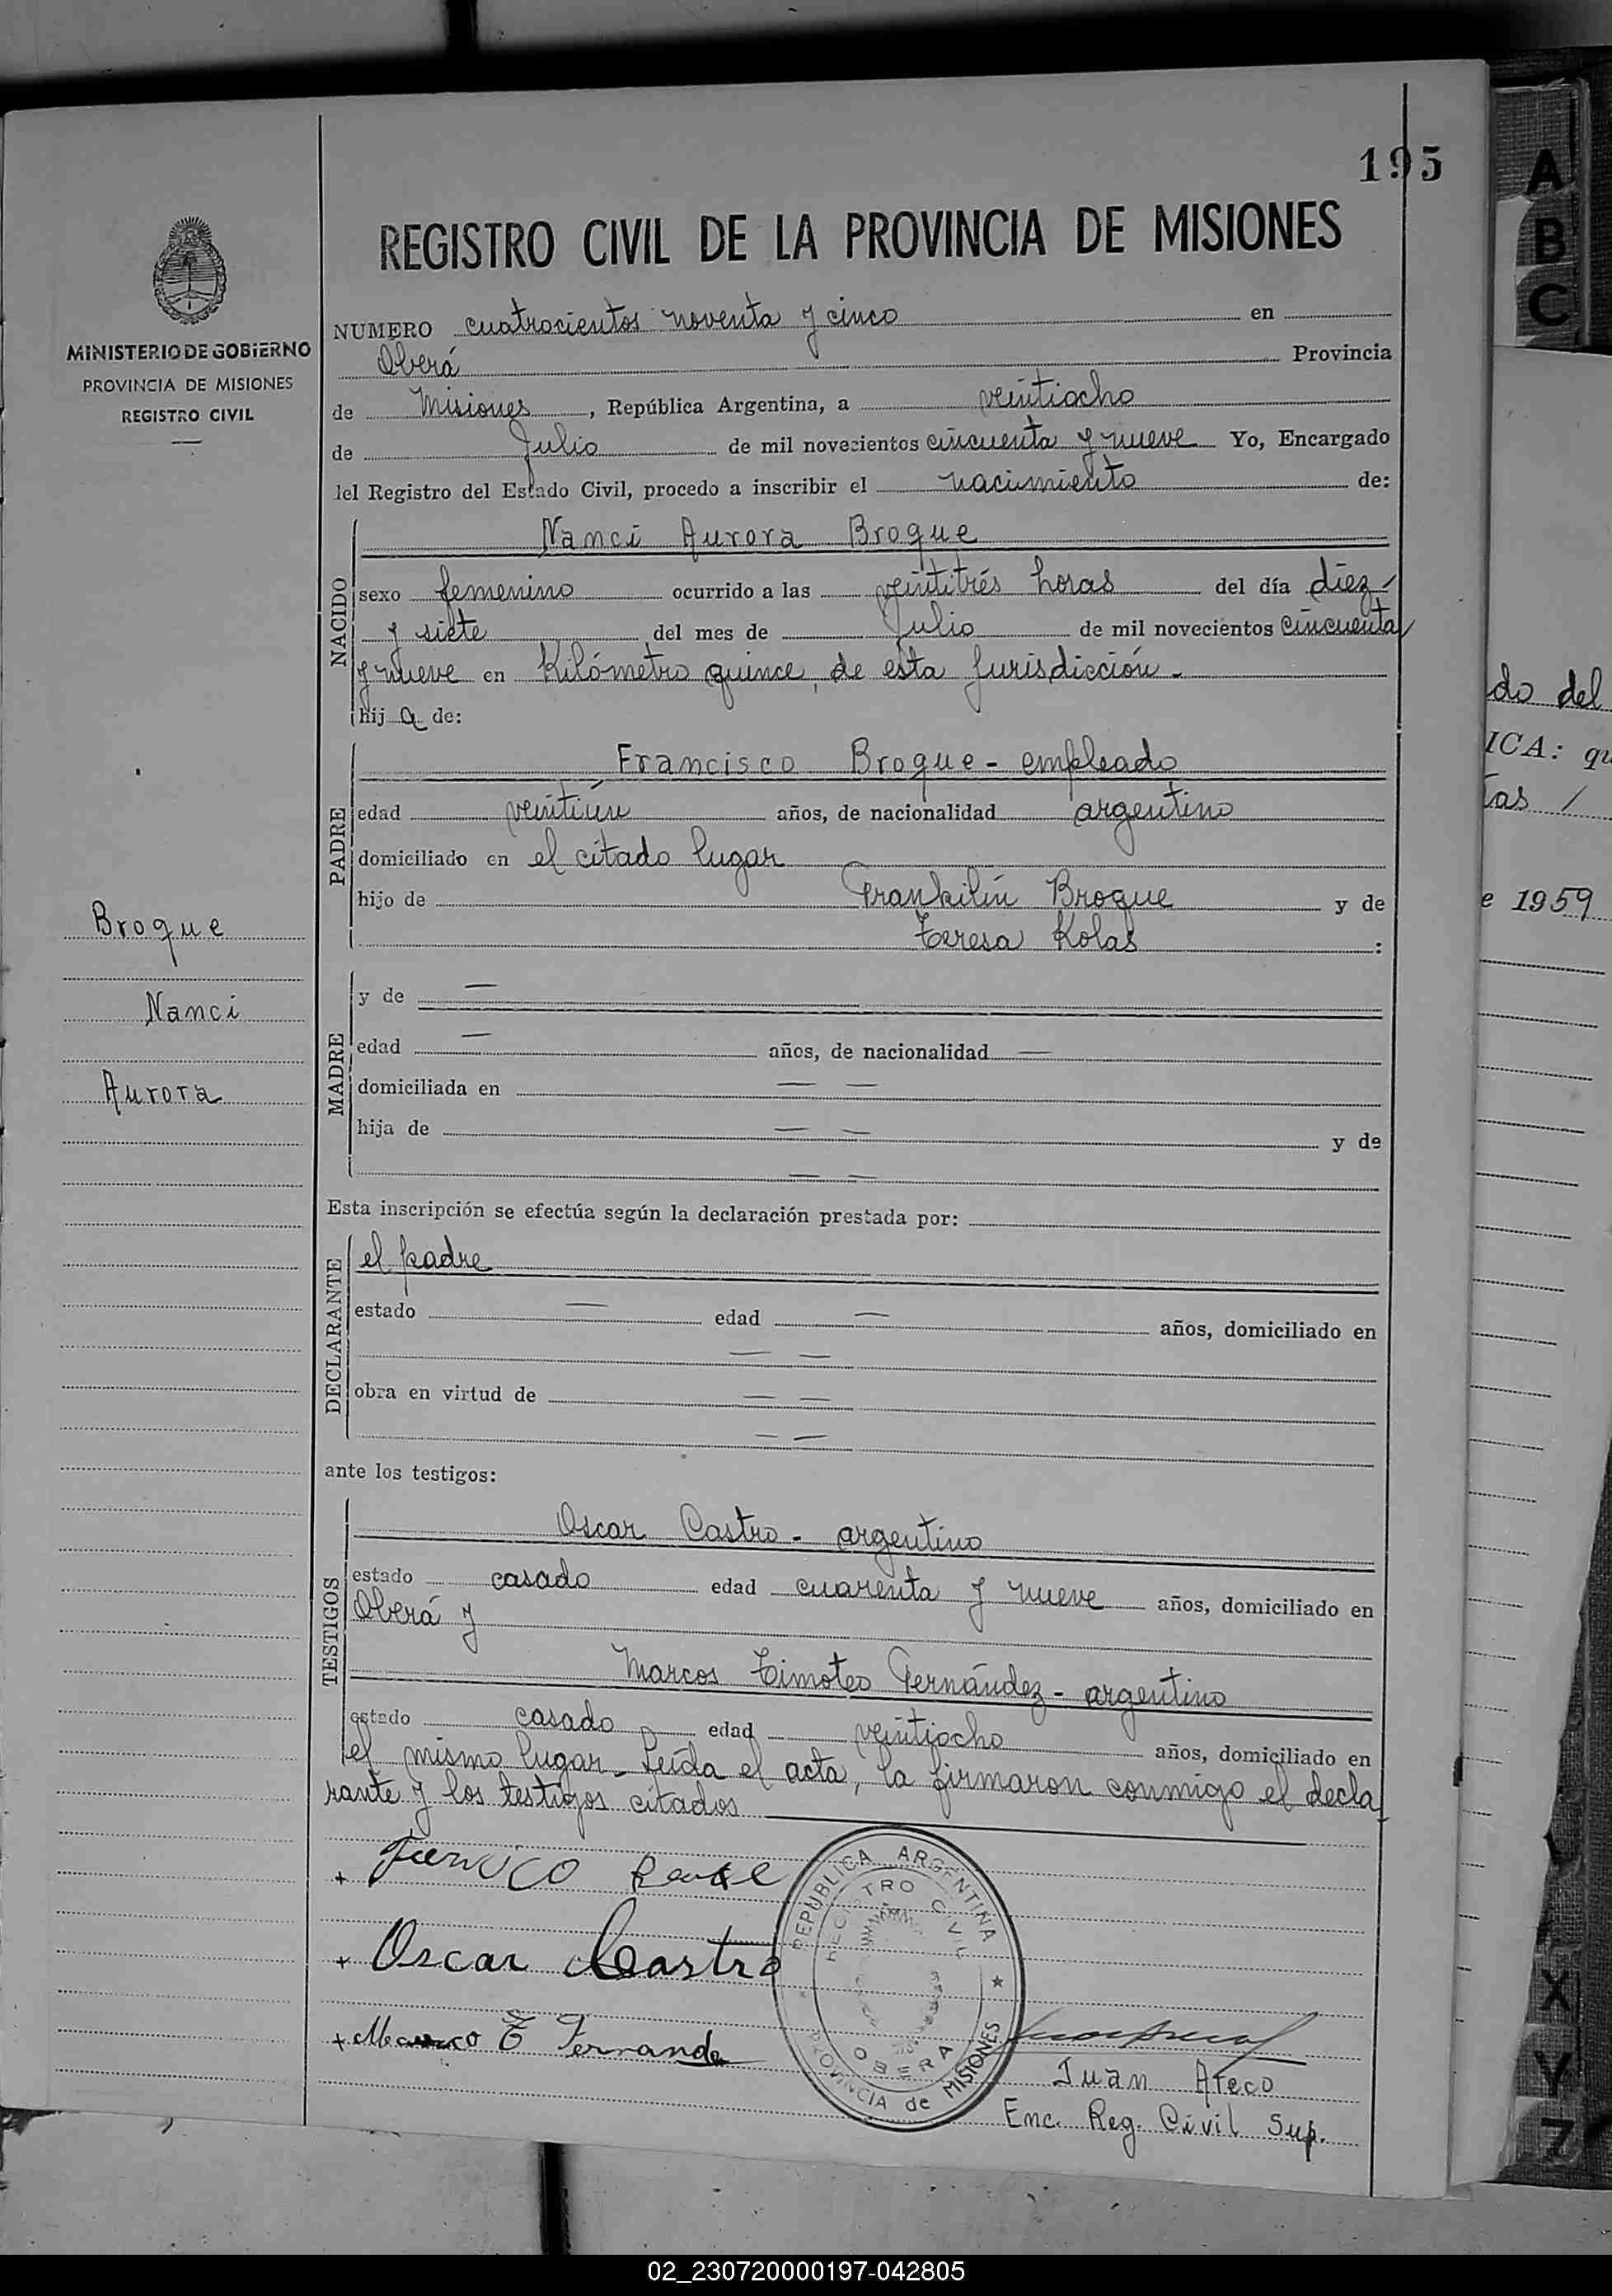 195
REGISTRO CIVIL DE LA PROVINCIA DE MISIONES
MINISTERIO DE GOBIERNO
PROVINCIA DE MISIONES
REGISTRO CIVIL
NUMERO cuatrocientos noventa y cinco en
Oberá Provincia
de Misiones, República Argentina, a veintiocho
de Julio de mil novecientos cincuenta y nueve Yo, Encargado
del Registro del Estado Civil, procedo a inscribir el nacimiento de:
NACIDO
Nanci Aurora Broque
sexo femenino ocurrido a las veintitrés horas del día diez
y siete del mes de Julio de mil novecientos cincuenta
y nueve en Kilómetro quince, de esta Jurisdicción.-
hij a de:
PADRE
Francisco Broque - empleado
edad veintiún años, de nacionalidad argentino
domiciliado en el citado lugar
hijo de Frankilin Broque y de
Teresa Kolas :
Broque
Nanci
Aurora
MADRE
y de —
edad — años, de nacionalidad —
domiciliada en — —
hija de — — y de
— —
Esta inscripción se efectúa según la declaración prestada por:
DECLARANTE
el padre
estado — edad — años, domiciliado en
— —
obra en virtud de — —
— —
ante los testigos:
TESTIGOS
Oscar Castro - argentino
estado casado edad cuarenta y nueve años, domiciliado en
Oberá y
Marcos Timoteo Fernández - argentino
estado casado edad veintiocho años, domiciliado en
el mismo lugar. Leída el acta, la firmaron conmigo el decla
rante y los testigos citados
+ Oscar Castro
+ Marco T Fernande
REPUBLICA ARGENTINA
REGISTRO CIVIL
OBERA
PROVINCIA de MISIONES
Juan Areco
Enc. Reg. Civil Sup.
do del
ICA: qu
tas /
e 1959
A
B
C
X
Y
Z
02_230720000197-042805